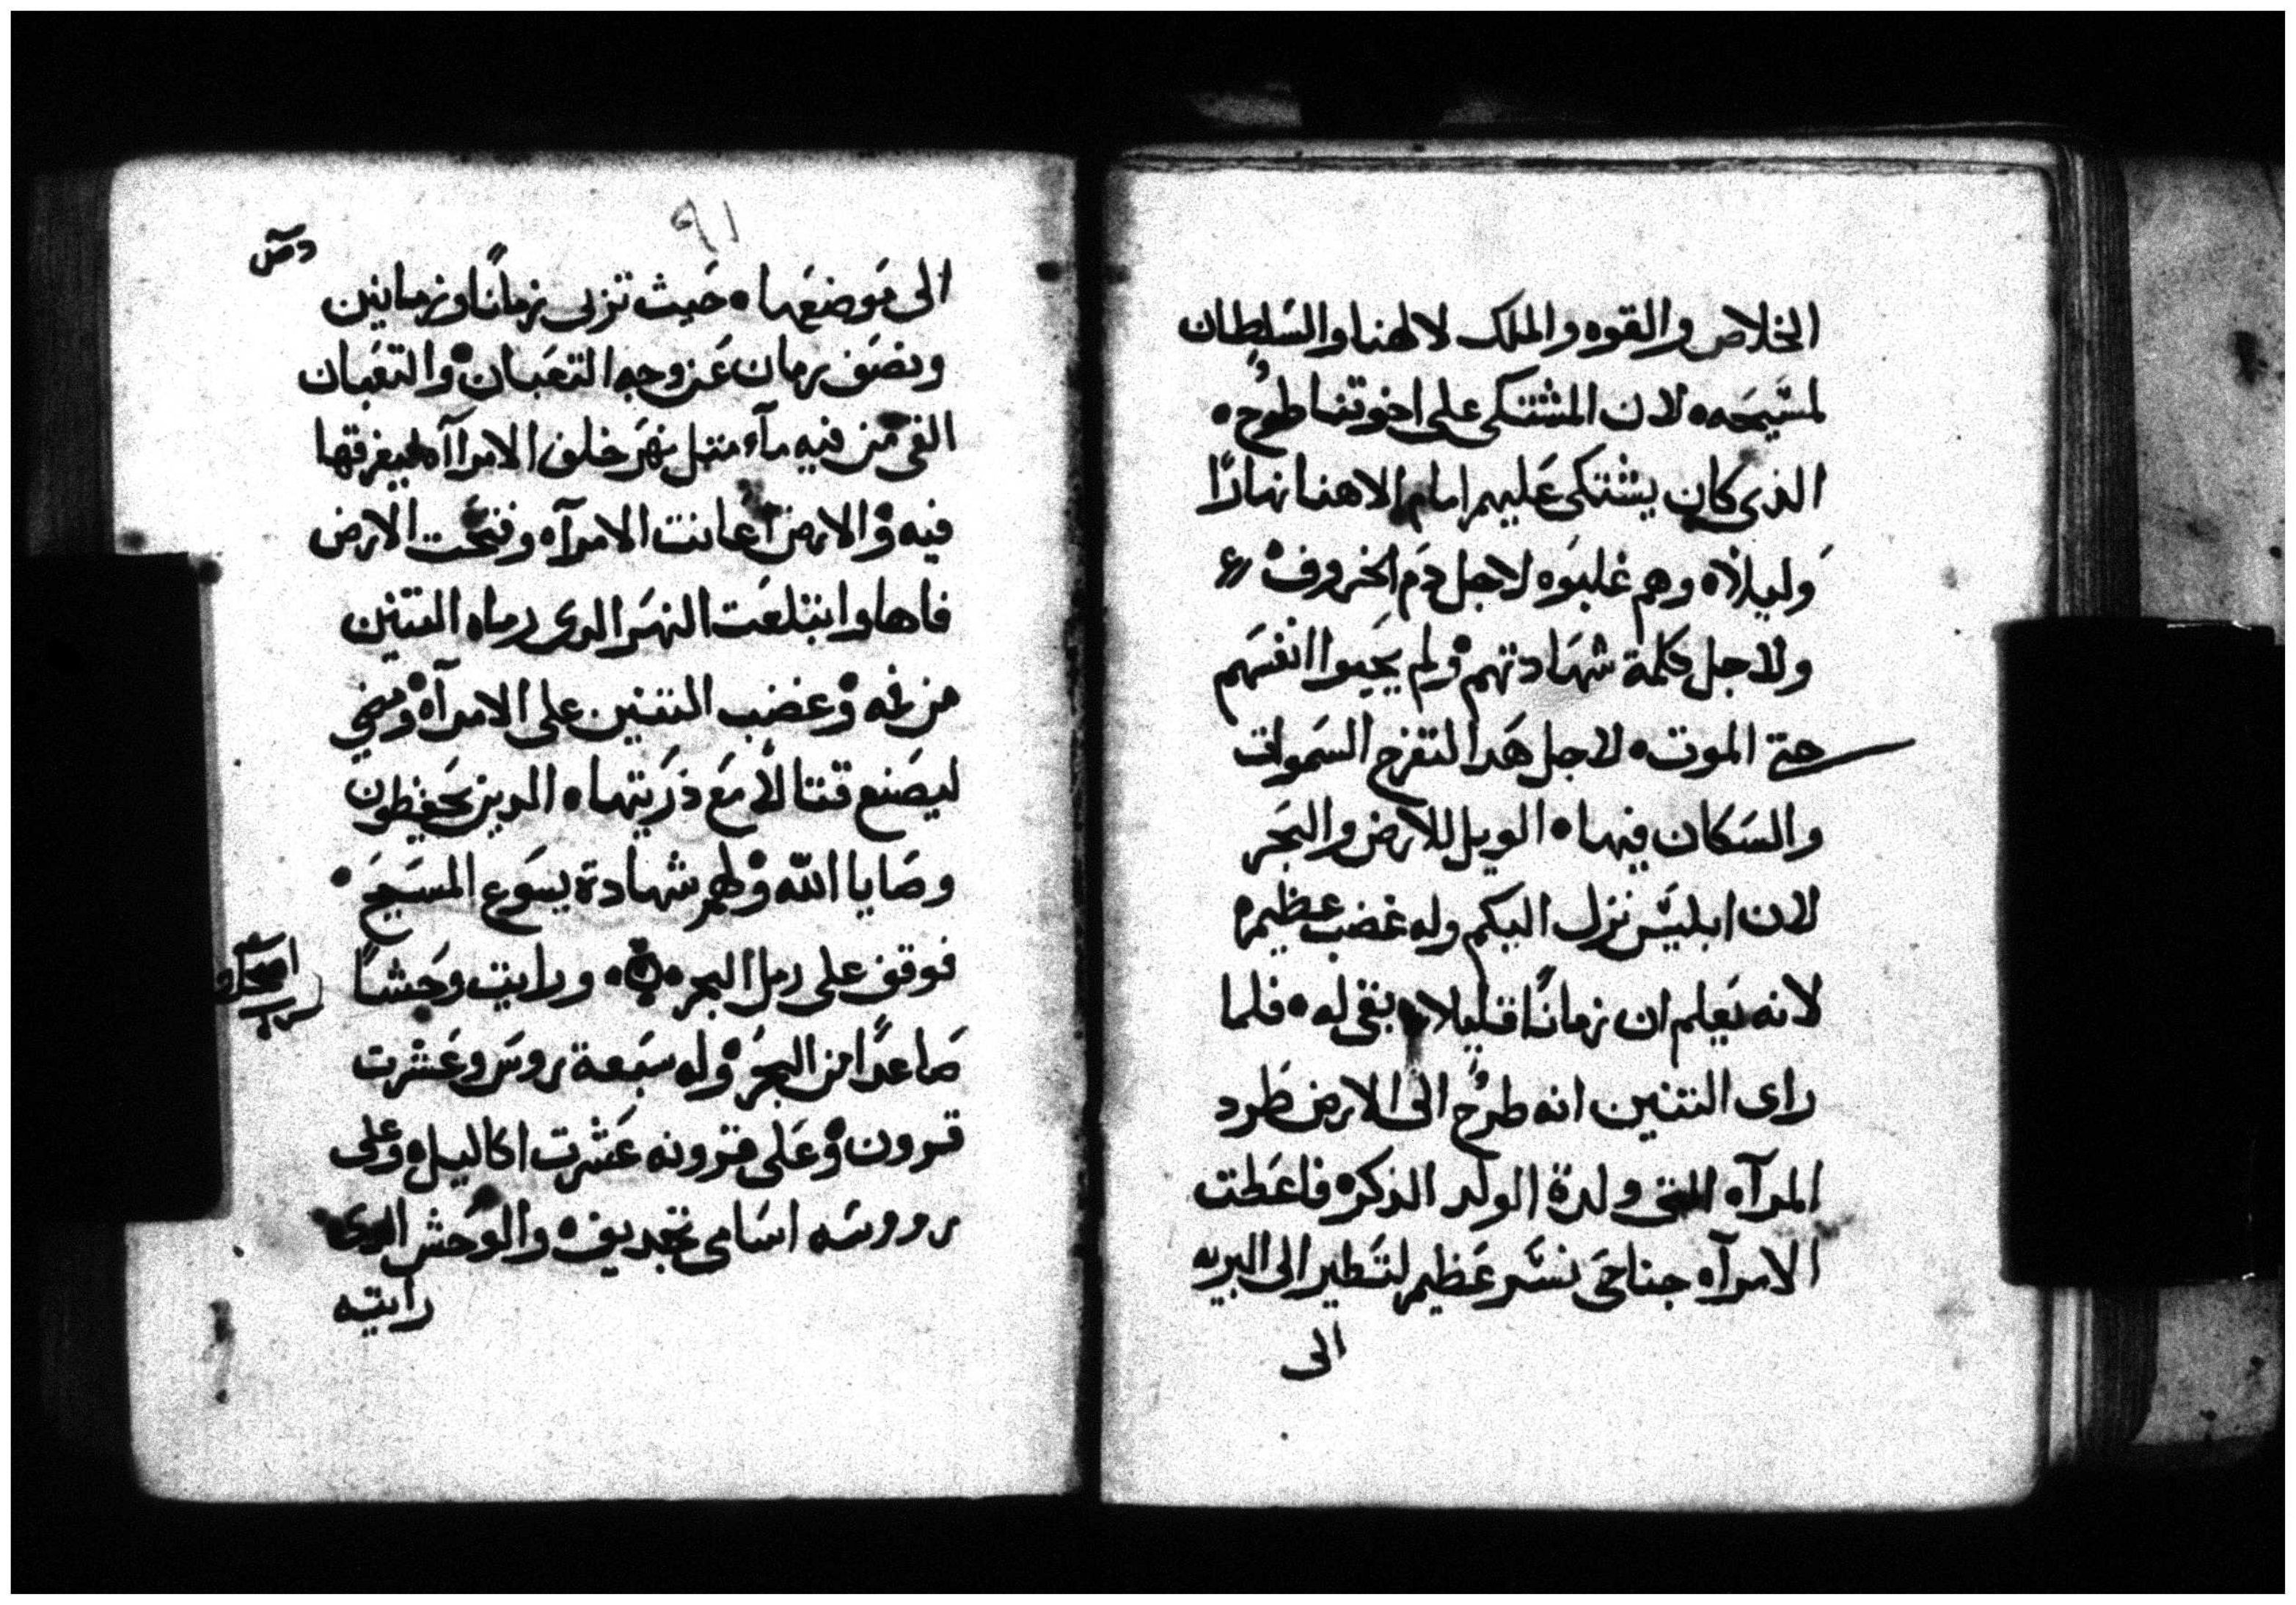 الخلاص والقوه والملك لالهنا والسلطان
لمسيحه ٥ لان المشتكى على اخوتنا طرح ٥
الذى كان يشتكى عليهم امام الاهنا نهارًا
وليلاً ٥ وهم غلبوه لاجل دم الخروف ٥
ولاجل كلمة شهادتهم ٥ ولم يحبوا انفسهم
حتى الموت ٥ لاجل هدا التفرح السموات
والسكان فيها ٥ الويل للارض والبحر
لان ابليس نزل اليكم وله غضب عظيم ٥
لانه يعلم ان زمانًا قليلا بقى له ٥ فلما
راى التنين انه طرح الى الارض طرد
المرآه التى ولدة الولد الذكر ٥ فاعطت
الامرآه جناحى نسر عظيم لتطير الى البريه
الى
٩١
الى موضعها ٥ حيث تربى زمانًا وزمانين
ونصف زمان عن وجه التعبان ٥ والتعبان
القى من فيه مآء متل نهر خلف الامرآه ليغرقها
فيه ٥ والارض اعانت الامرآه وفتحت الارض
فاها وابتلعت النهر الدى رماه التنين
من فمه ٥ وغضب التنين على الامرآه ٥ ومضى
ليصنع قتالاً مع ذريتها ٥ الدين يحفظون
وصايا الله ٥ ولهم شهادة يسوع المسيح ٥
فوقف على رمل البحر ٥ ورايت وحشًا
صاعدًا من البحر ٥ وله سبعة روس وعشرت
قرون ٥ وعلى قرونه عشرت اكاليل ٥ وعلى
رووسه اسامى تجديف ٥ والوحش الدى
رايته